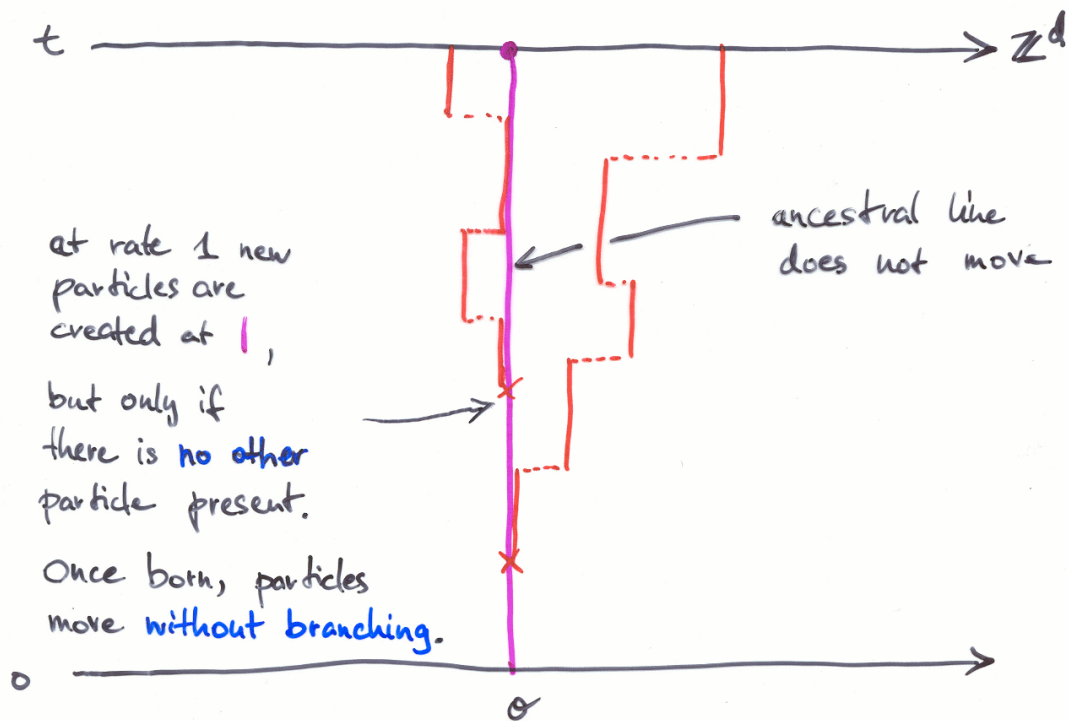 t
ℤᵈ
ancestral line
does not move
at rate 1 new
particles are
created at |,
but only if
there is no other
particle present.
Once born, particles
move without branching.
0
0